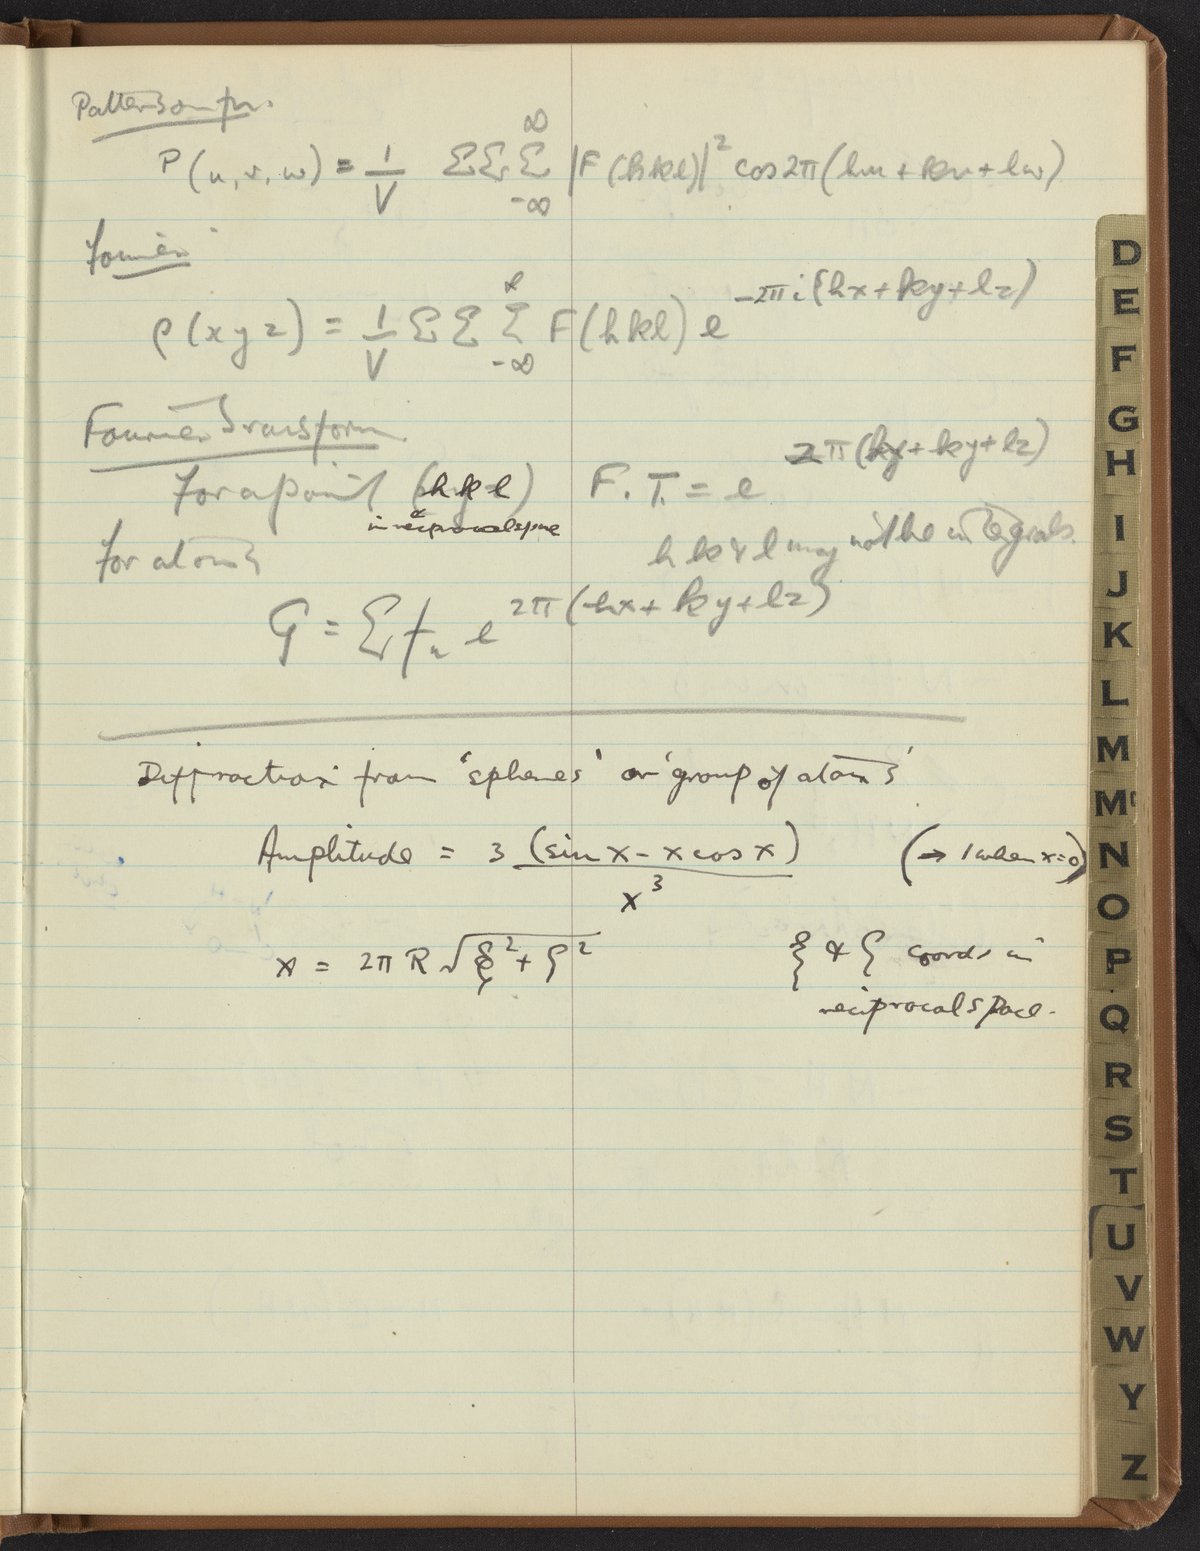 Patterson fn.
P(u, v, w) = 1/V ΣΣΣ ∞ -∞ |F(hkl)|² cos2π(hu + kv + lw)
Fourier
ρ(xyz) = 1/V ΣΣΣ ∞ -∞ F(hkl) e^-2πi{hx+ky+lz)
Fourier Transform
For a point (hkl) F.T. = e^2π(hx+ky+lz)
in reciprocal space
h k & l may not be integrals.
For atoms
G = Σ fn e^2π(hx+ky+lz)
Diffraction from 'spheres' or 'group of atoms'
Amplitude = 3 (sin x - x cos x) / x³ (→ 1 when x=0)
x = 2πR√ξ² + ζ² ξ & ζ coords in
reciprocal space.
D
E
F
G
H
I
J
K
L
M
Mc
N
O
P
Q
R
S
T
U
V
W
Y
Z